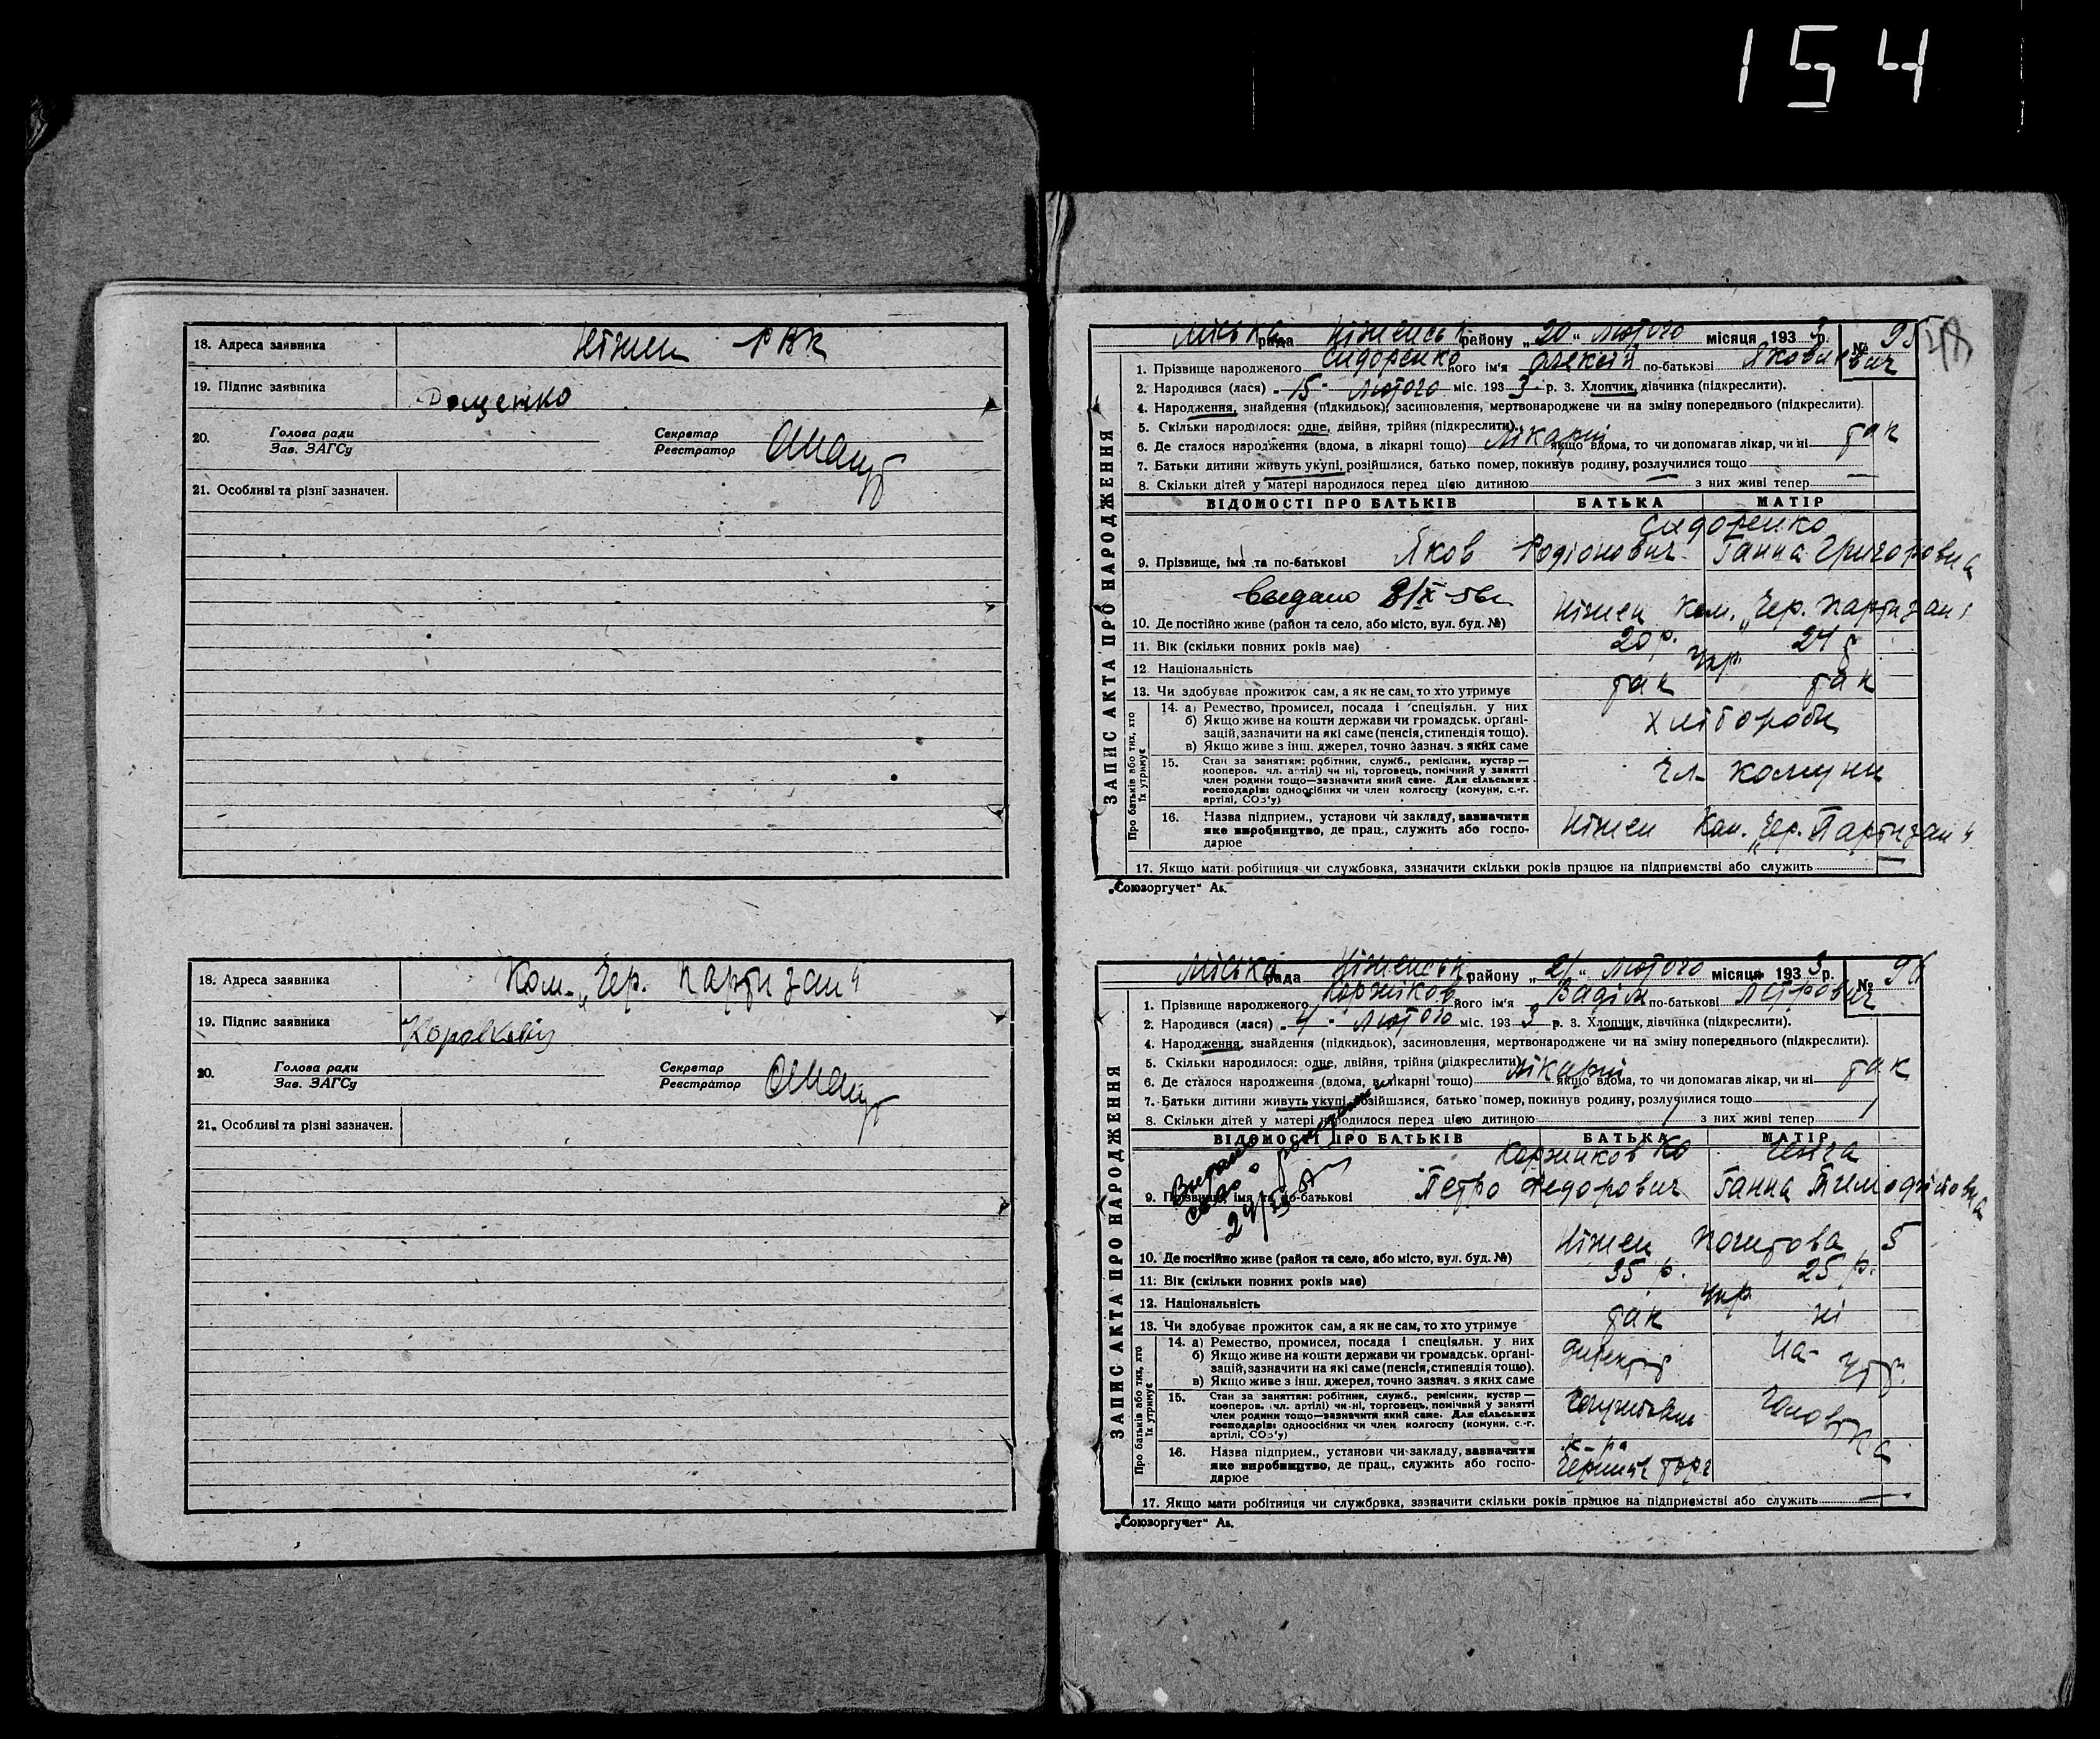 154
18. Адреса заявника Ніжен РВК
19. Підпис заявника Дощенко
20. Голова ради
Зав. ЗАГСу
Секретар
Реєстратор
21. Особливі та різні зазначен.
18. Адреса заявника Ком. „Чер. Партизан"
19. Підпис заявника
20. Голова ради
Зав. ЗАГСу
Секретар
Реєстратор
21. Особливі та різні зазначен.
48
ЗАПИС АКТА ПРО НАРОДЖЕННЯ
Міська рада Ніженськ району „20" Лютого місяця 1933 р. № 95
1. Прізвище народженого Сидоренко його ім'я Олексій по-батькові Яковлевич
2. Народився (лася) „15" Лютого міс. 1933 р. 3. Хлопчик, дівчинка (підкреслити).
4. Народження, знайдення (підкидьок), засиновлення, мертвонароджене чи на зміну попереднього (підкреслити).
5. Скільки народилося: одне, двійня, трійня (підкреслити).
6. Де сталося народження (вдома, в лікарні тощо) Лікарні якщо вдома, то чи допомагав лікар, чи ні так
7. Батьки дитини живуть укупі, розійшлися, батько помер, покинув родину, розлучилися тощо
8. Скільки дітей у матері народилося перед цією дитиною — з них живі тепер —
ВІДОМОСТІ ПРО БАТЬКІВ БАТЬКА МАТІР
Сидоренко
9. Прізвище, імя та по-батькові Яков Родіонович Ганна Григоровна
Выдано
10. Де постійно живе (район та село, або місто, вул. буд. №) Ніжен Ком. „Чер. Партизан"
11. Вік (скільки повних років має) 20 р. 24 р.
12. Національність Укр.
13. Чи здобуває прожиток сам, а як не сам, то хто утримує так так
Про батьків або тих, хто їх утримує
14. а) Ремество, промисел, посада і спеціяльн. у них
б) Якщо живе на кошти держави чи громадськ. орґані-
зацій, зазначити на які саме (пенсія, стипендія тощо).
в) Якщо живе з інш. джерел, точно зазнач. з яких саме
хлібороби
15. Стан за заняттям: робітник, служб., ремісник, кустар —
кооперов. чл. артілі) чи ні, торговець, помічний у занятті
член родини тощо—зазначити який саме. Для сільських
господарів: одноосібних чи член колгоспу (комуни, с.-г.
артілі, СОЗ'у)
Чл. комуни
16. Назва підприєм., установи чи закладу, зазначити
яке виробництво, де прац., служить або госпо-
дарює
Ніжен Ком. „Чер. Партизан"
17. Якщо мати робітниця чи службовка, зазначити скільки років працює на підприємстві або служить —
„Союзоргучет" Ак.
ЗАПИС АКТА ПРО НАРОДЖЕННЯ
Міська рада Ніженськ району „21" Лютого місяця 1933 р. № 96
1. Прізвище народженого Коржіков його ім'я Вадім по-батькові Петрович
2. Народився (лася) „4" Лютого міс. 1933 р. 3. Хлопчик, дівчинка (підкреслити).
4. Народження, знайдення (підкидьок), засиновлення, мертвонароджене чи на зміну попереднього (підкреслити).
5. Скільки народилося: одне, двійня, трійня (підкреслити).
6. Де сталося народження (вдома, в лікарні тощо) Лікарні якщо вдома, то чи допомагав лікар, чи ні так
7. Батьки дитини живуть укупі, розійшлися, батько помер, покинув родину, розлучилися тощо
8. Скільки дітей у матері народилося перед цією дитиною 1 з них живі тепер 1
ВІДОМОСТІ ПРО БАТЬКІВ БАТЬКА МАТІР
Коржиков
9. Прізвище, імя та по-батькові Петро Федорович Ганна Тимофіїовна
Выдано свид. о рождении
10. Де постійно живе (район та село, або місто, вул. буд. №) Ніжен Поштова 5
11. Вік (скільки повних років має) 35 р. 25 р.
12. Національність Укр.
13. Чи здобуває прожиток сам, а як не сам, то хто утримує так ні
Про батьків або тих, хто їх утримує
14. а) Ремество, промисел, посада і спеціяльн. у них
б) Якщо живе на кошти держави чи громадськ. орґані-
зацій, зазначити на які саме (пенсія, стипендія тощо).
в) Якщо живе з інш. джерел, точно зазнач. з яких саме
директор На утр.
15. Стан за заняттям: робітник, служб., ремісник, кустар —
кооперов. чл. артілі) чи ні, торговець, помічний у занятті
член родини тощо—зазначити який саме. Для сільських
господарів: одноосібних чи член колгоспу (комуни, с.-г.
артілі, СОЗ'у)
16. Назва підприєм., установи чи закладу, зазначити
яке виробництво, де прац., служить або госпо-
дарює
к-ра торг
17. Якщо мати робітниця чи службовка, зазначити скільки років працює на підприємстві або служить —
„Союзоргучет" Ак.